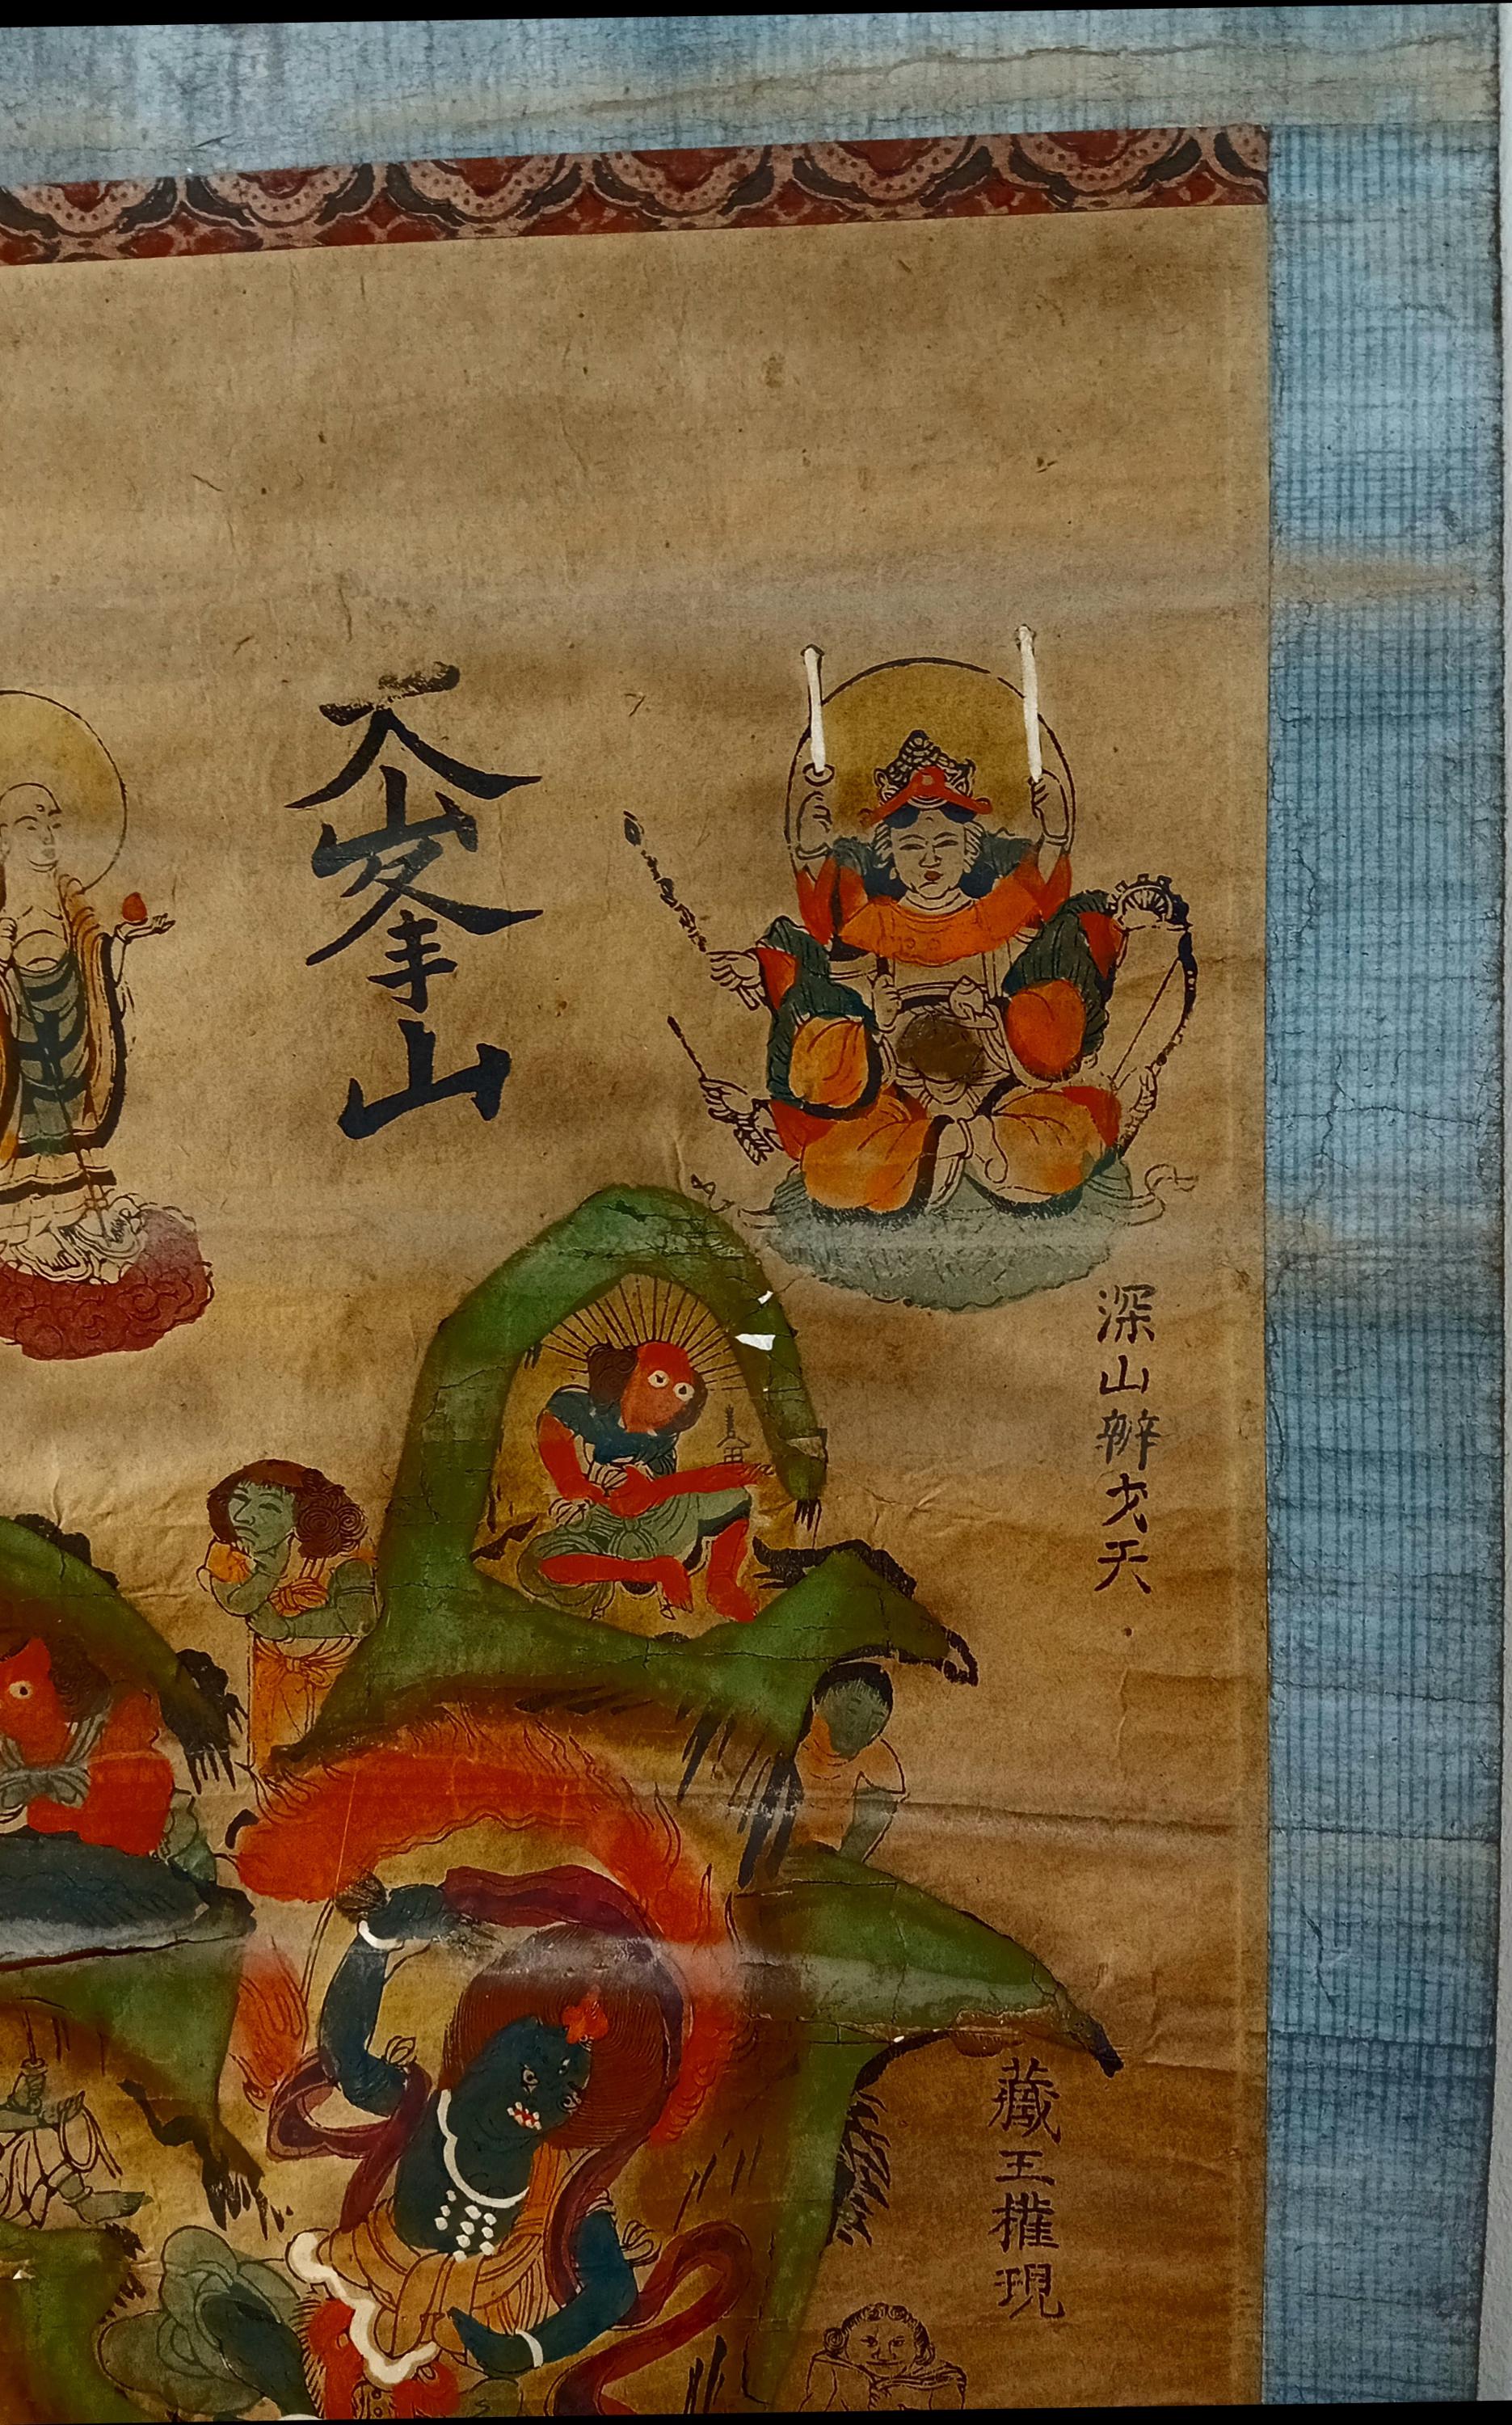 深山辨才天
藏王權現
大峯山